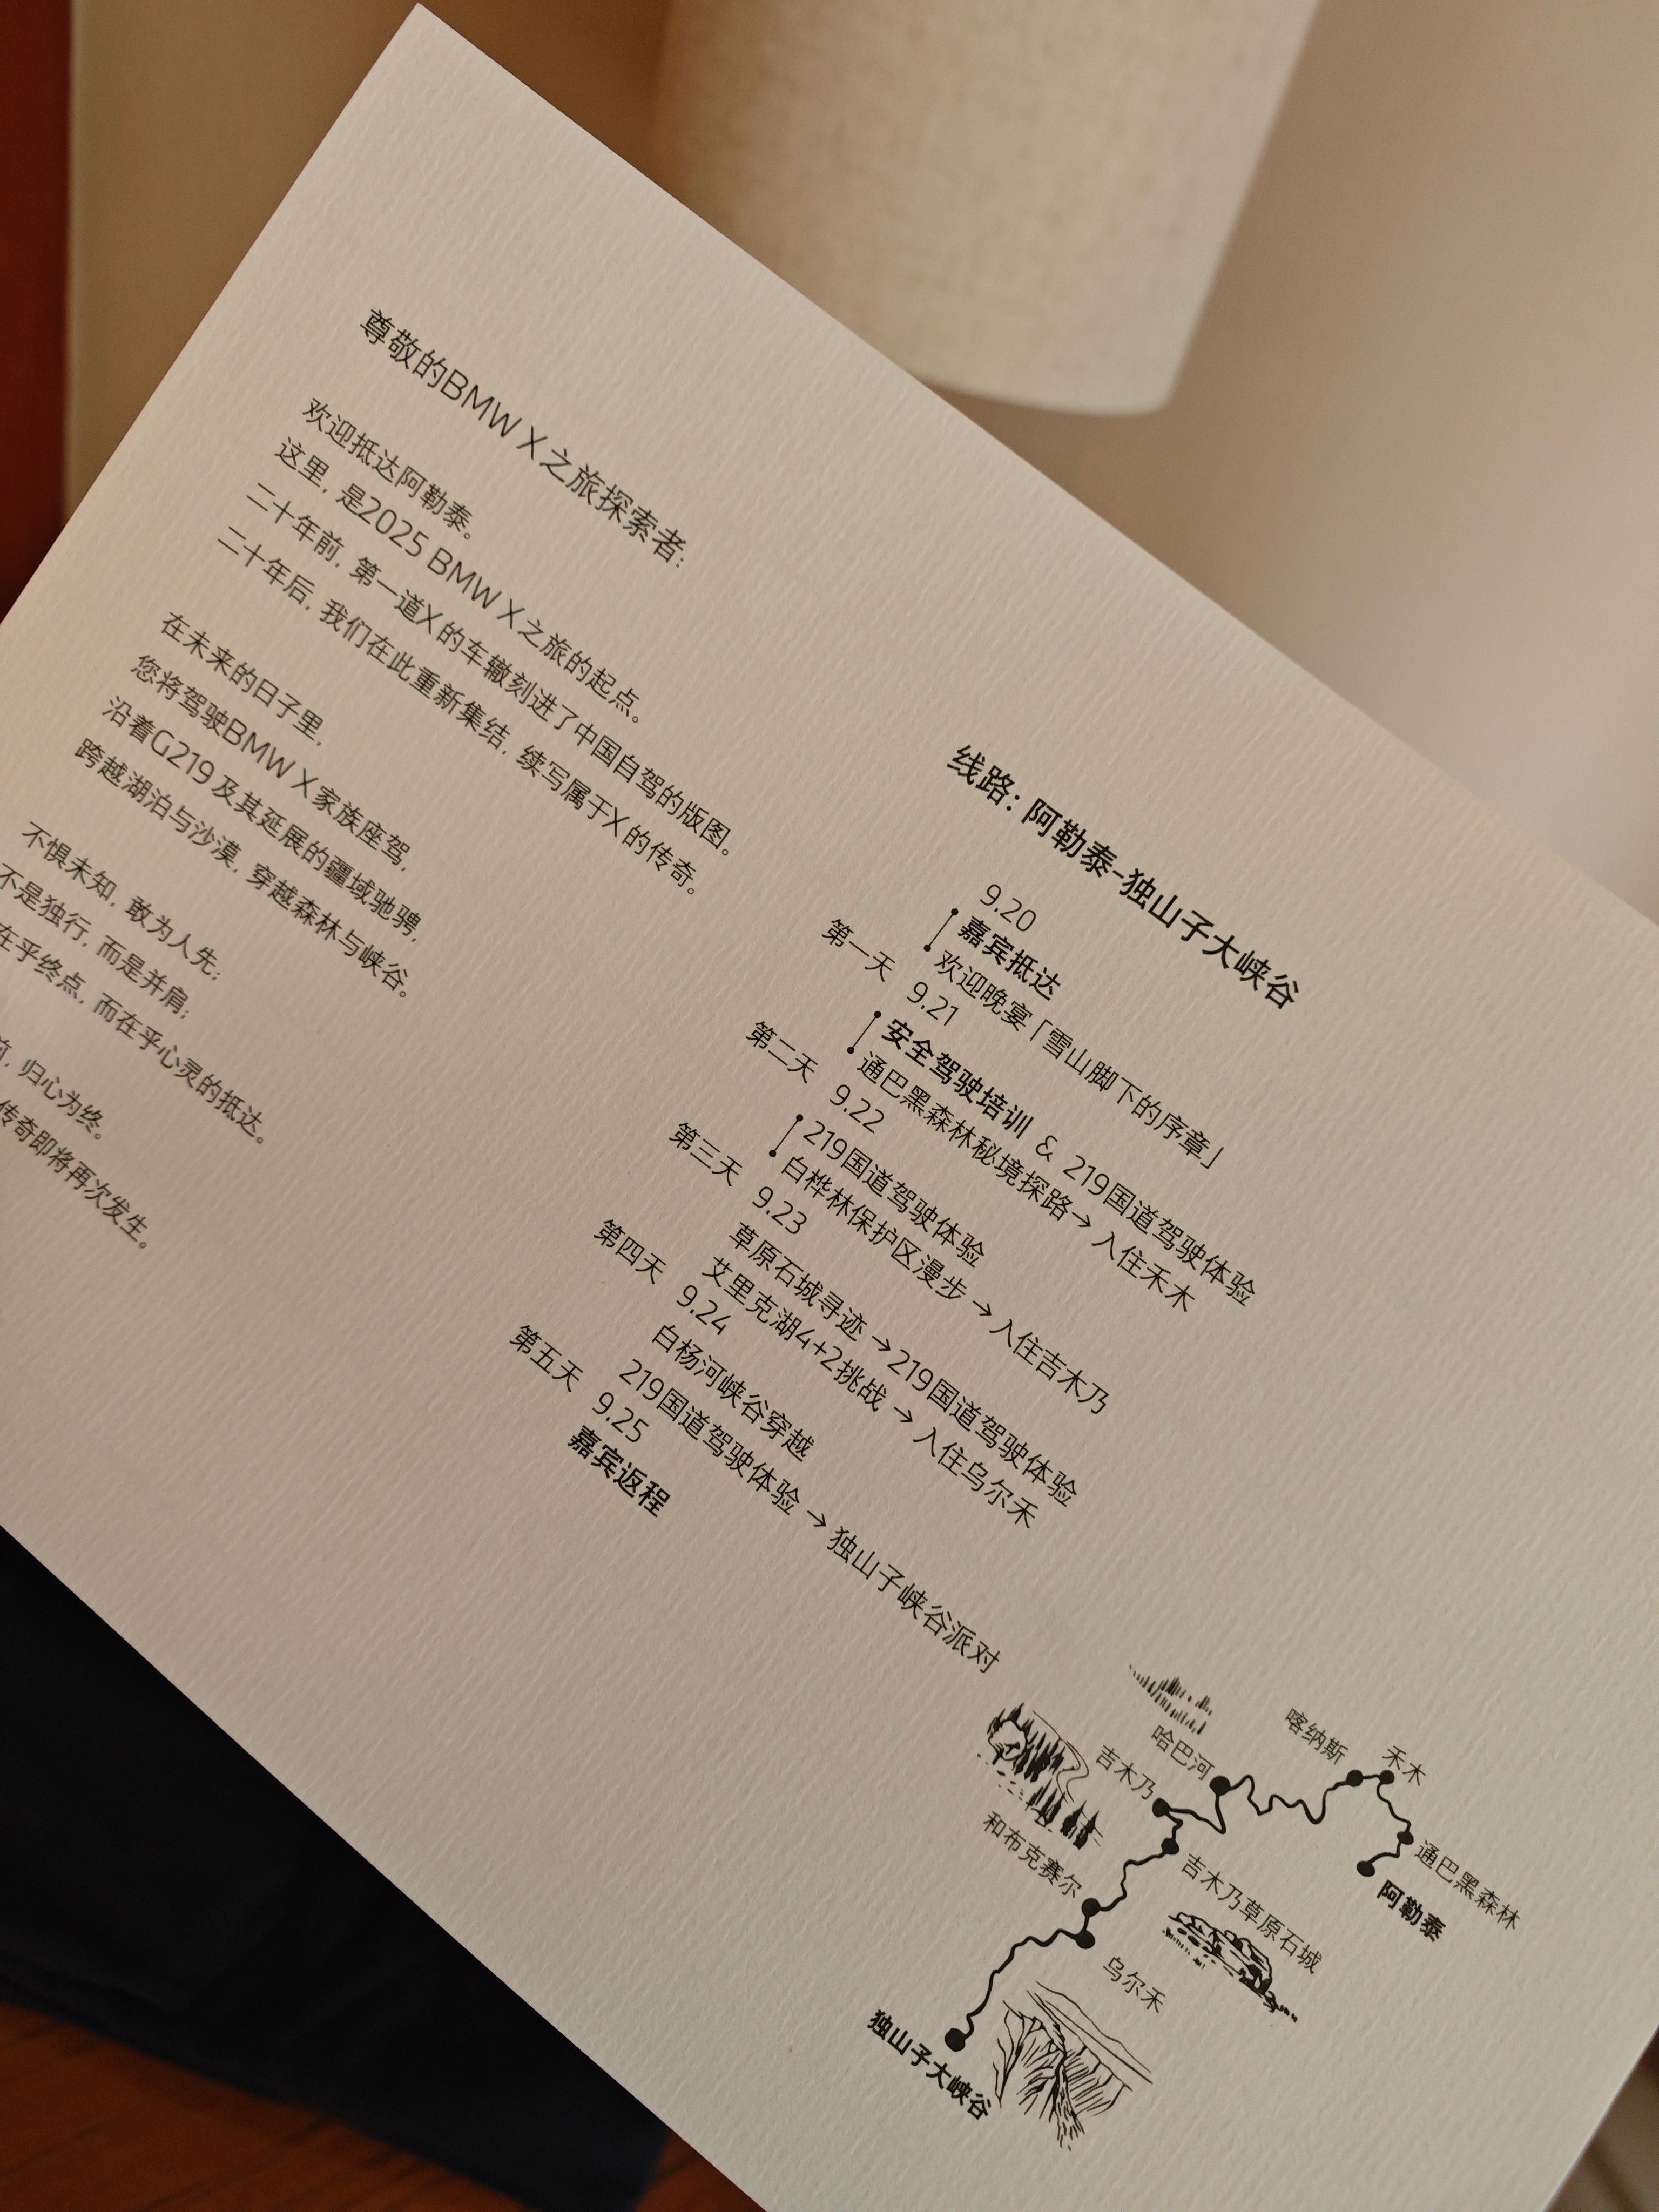 尊敬的BMW X之旅探索者:
欢迎抵达阿勒泰。
这里, 是2025 BMW X之旅的起点。
二十年前, 第一道X的车辙刻进了中国自驾的版图。
二十年后, 我们在此重新集结, 续写属于X的传奇。
在未来的日子里,
您将驾驶BMW X家族座驾,
沿着G219及其延展的疆域驰骋,
跨越湖泊与沙漠, 穿越森林与峡谷。
不惧未知, 敢为人先;
不是独行, 而是并肩;
在乎终点, 而在乎心灵的抵达。
前, 归心为终。
传奇即将再次发生。
线路: 阿勒泰-独山子大峡谷
第一天 9.20
嘉宾抵达
欢迎晚宴「雪山脚下的序章」
第二天 9.21
安全驾驶培训 & 219国道驾驶体验
通巴黑森林秘境探路→ 入住禾木
第三天 9.22
219国道驾驶体验
白桦林保护区漫步 → 入住吉木乃
第四天 9.23
草原石城寻迹 → 219国道驾驶体验
艾里克湖4+2挑战 → 入住乌尔禾
第五天 9.24
白杨河峡谷穿越
219国道驾驶体验 → 独山子峡谷派对
9.25
嘉宾返程
喀纳斯
禾木
哈巴河
吉木乃
通巴黑森林
阿勒泰
和布克赛尔
吉木乃草原石城
乌尔禾
独山子大峡谷